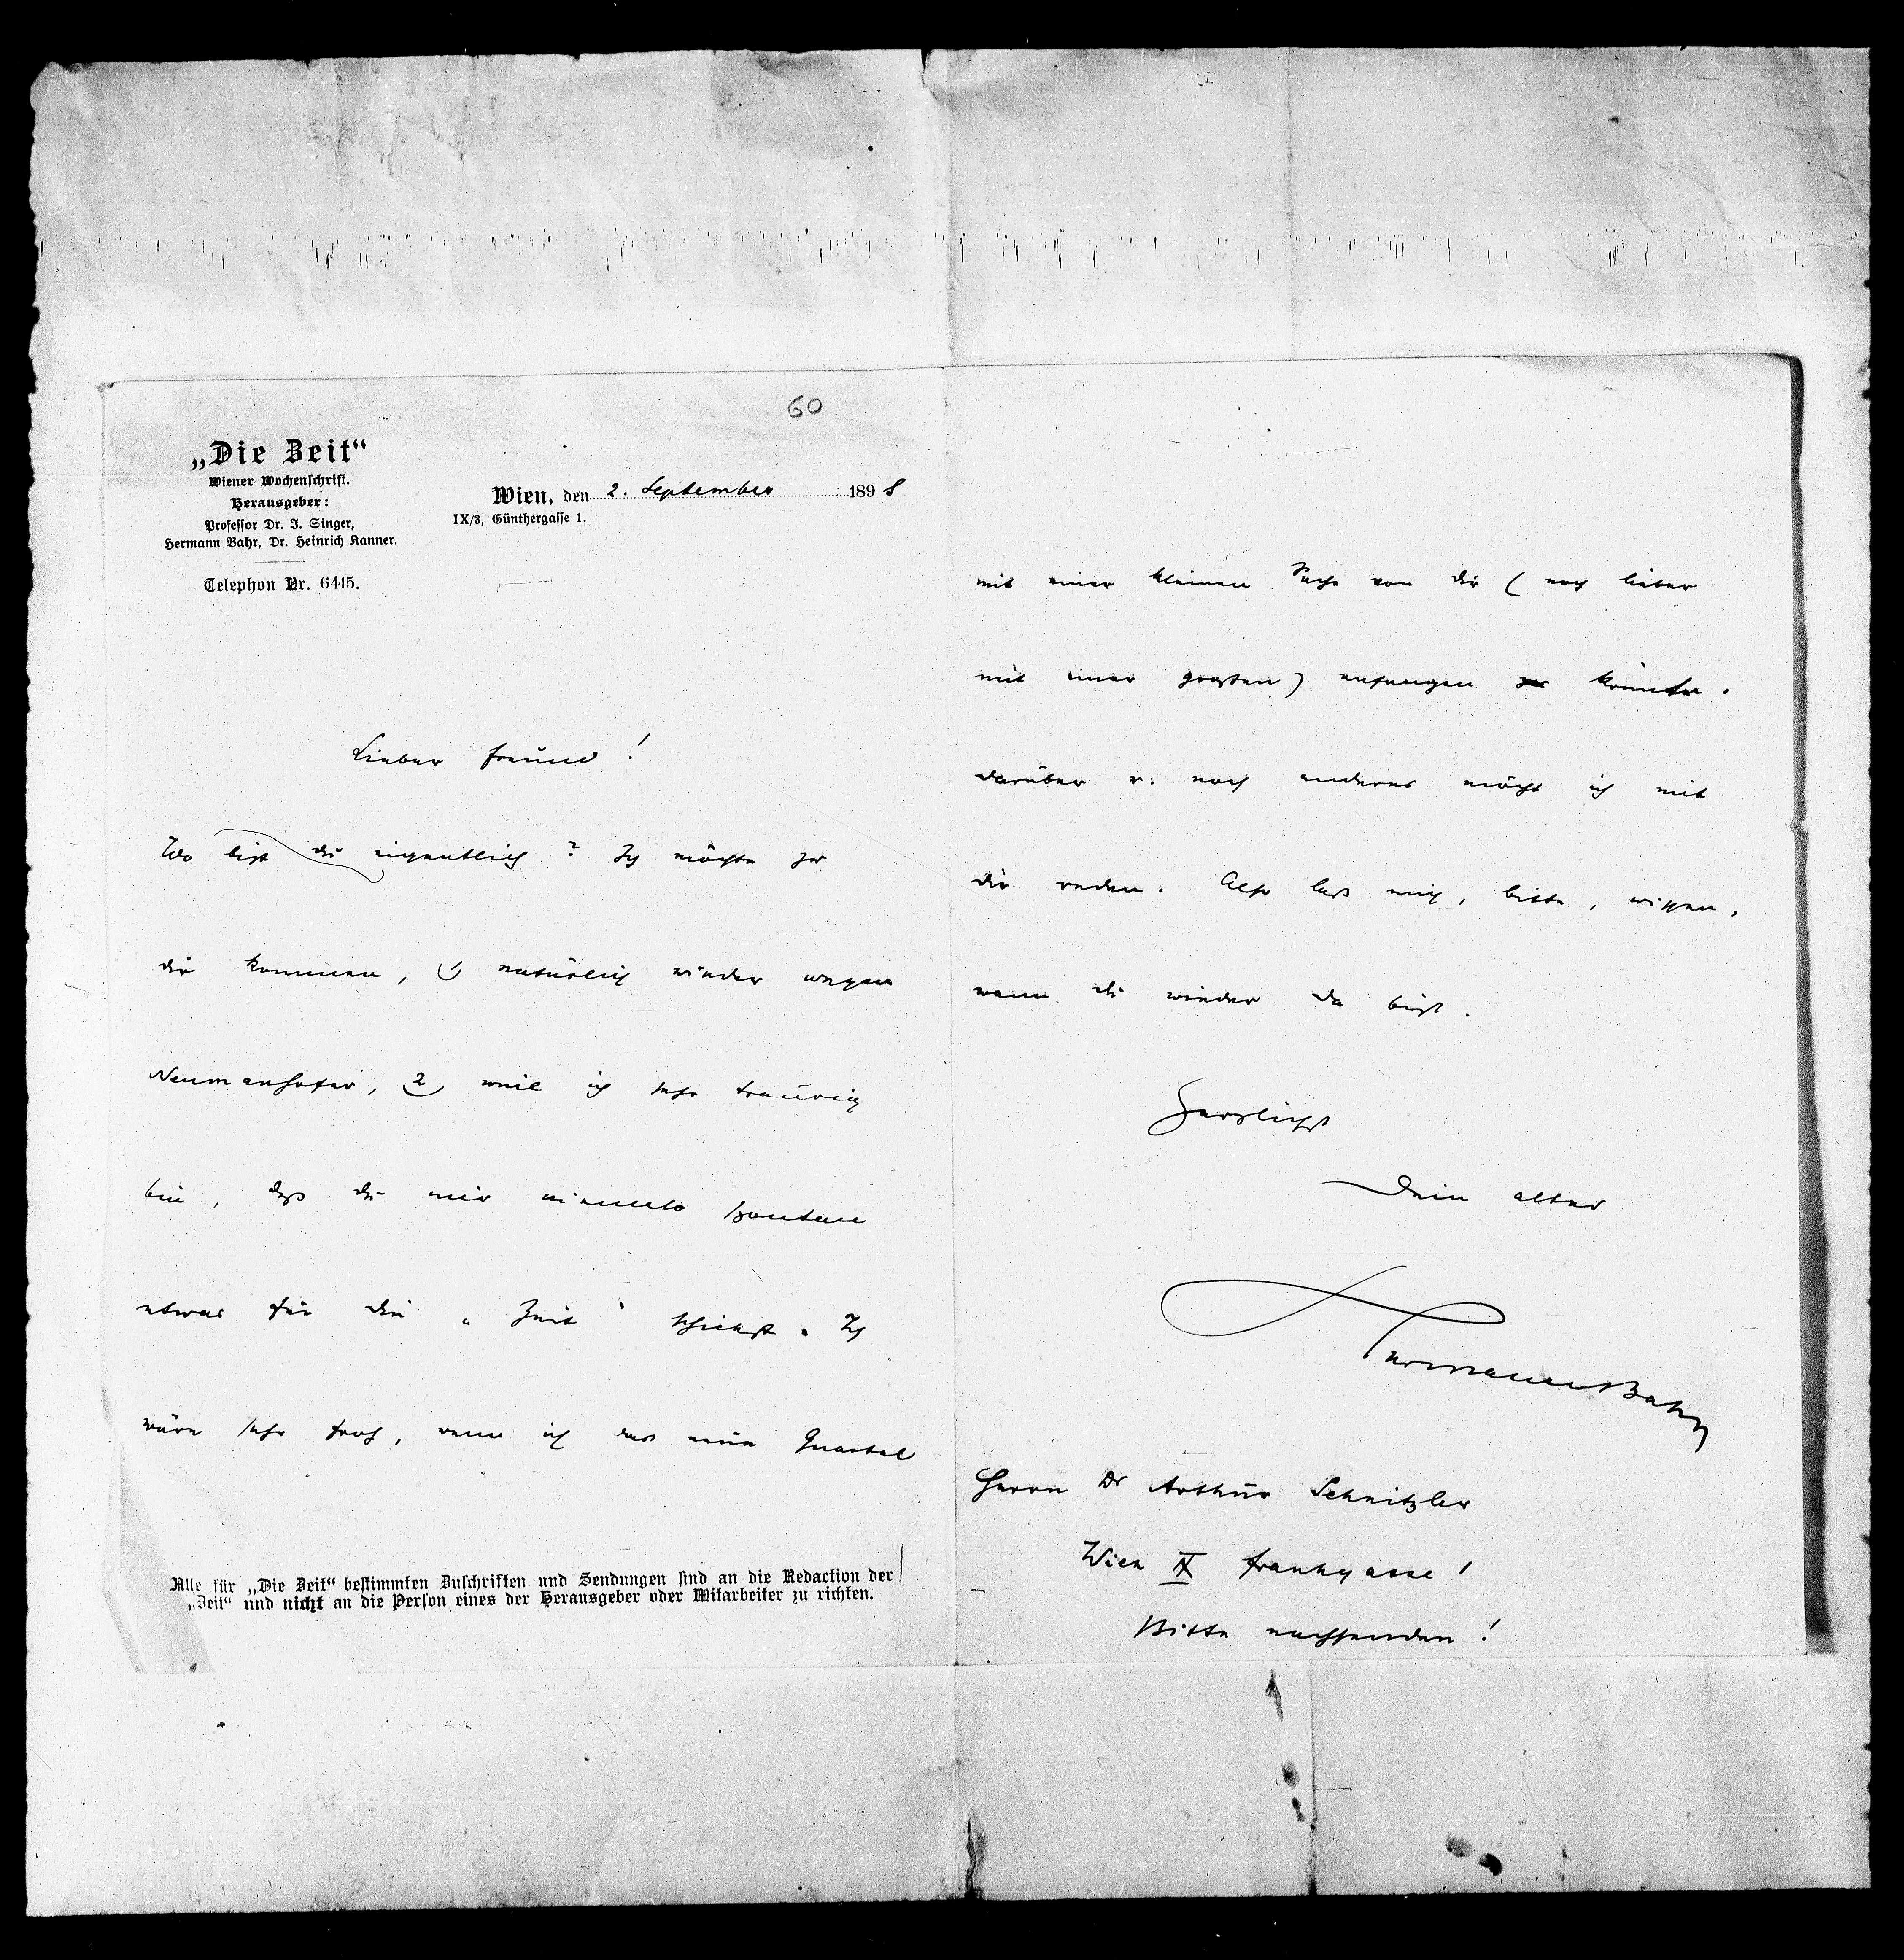 60
„Die Zeit“
Wiener Wochenschrift.
Herausgeber:
Professor Dr. J. Singer,
Hermann Bahr, Dr. Heinrich Kanner.
Telephon Nr. 6415.
Wien, den 2. September 1898
IX/3, Günthergasse 1.
Lieber Freund!
Wo bist du eigentlich? Ich möchte zu
dir kommen, 1) natürlich wieder wegen
Neumannhofer, 2) weil ich sehr traurig
bin, daß du mir niemals spontan
etwas für die „Zeit“ schickst. Ich
wäre sehr froh, wenn ich das neue Quartal
Alle für „Die Zeit“ bestimmten Zuschriften und Sendungen sind an die Redaction der
„Zeit“ und nicht an die Person eines der Herausgeber oder Mitarbeiter zu richten.
mit einer kleinen Sache von dir (noch lieber
mit einer großen) anfangen könnte.
Darüber u. noch anderes möcht ich mit
dir reden. Also laß mich, bitte, wissen,
wann du wieder da bist.
Herzlichst
Dein alter
Hermann Bahr
Herrn Dr Arthur Schnitzler
Wien IX Frankgasse 1
Bitte nachsenden!